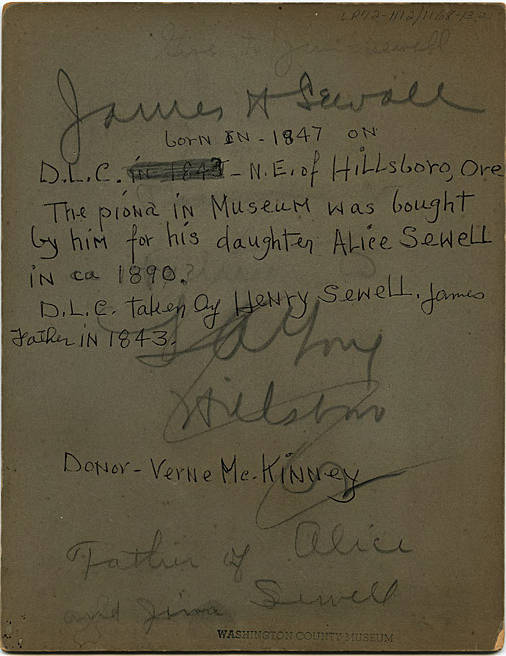 LR72-1112/1168-132
Give to Jim Sewell
James H Sewall
born IN - 1847 ON
D.L.C. in 1843 - N.E. of Hillsboro, Ore
The piona in Museum was bought
by him for his daughter Alice Sewell
in ca 1890.
D.L.C. taken by Henry Sewell. James
Father in 1843.
Hillsboro
Donor - Verne Mc-Kinney
Father of Alice
and Jim Sewell
WASHINGTON COUNTY MUSEUM